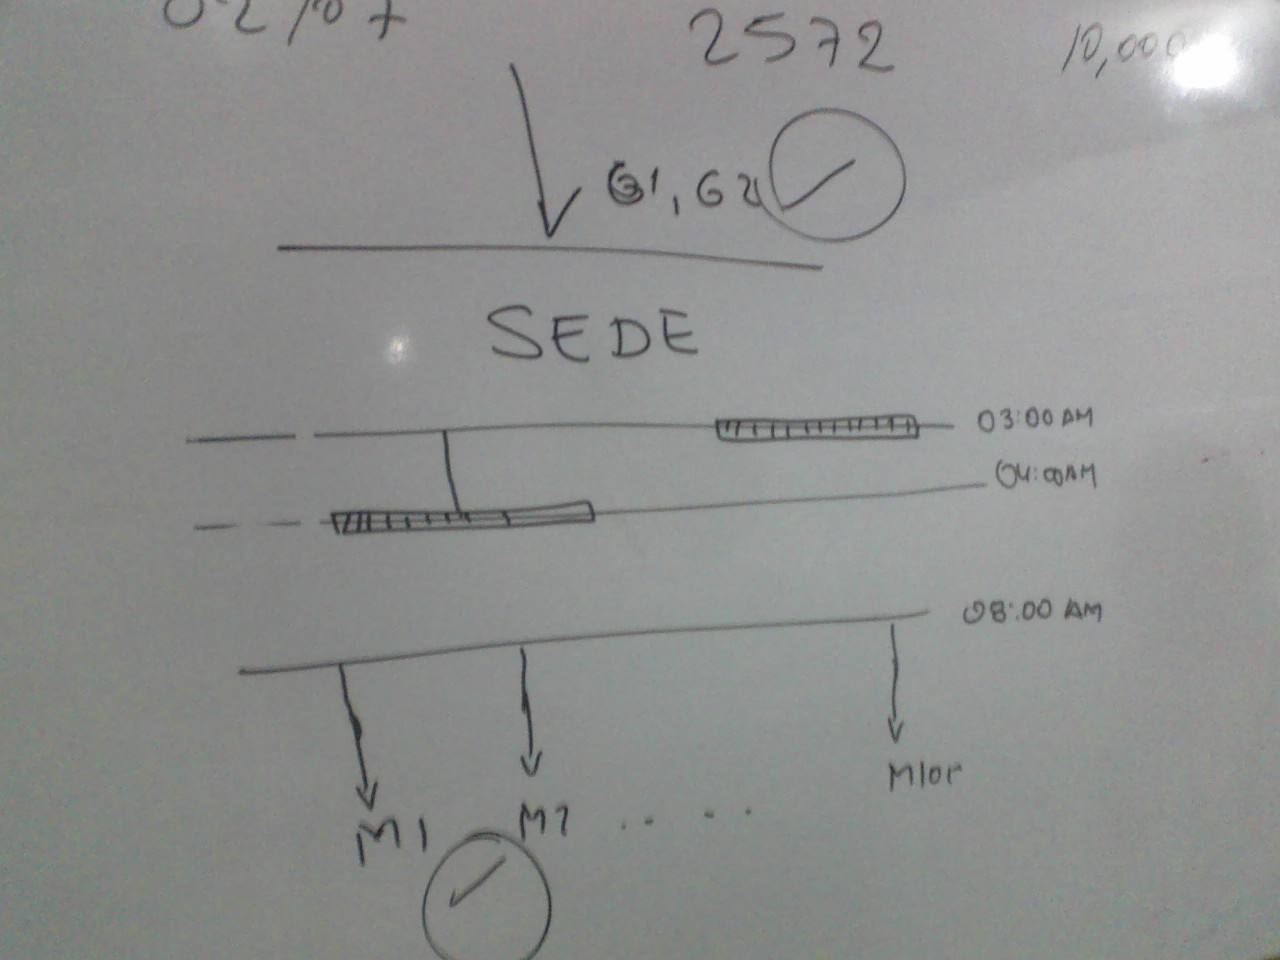 2572
10,000
G1, G2
SEDE
03:00 AM
04:00 AM
08:00 AM
M1
M2 . . . . .